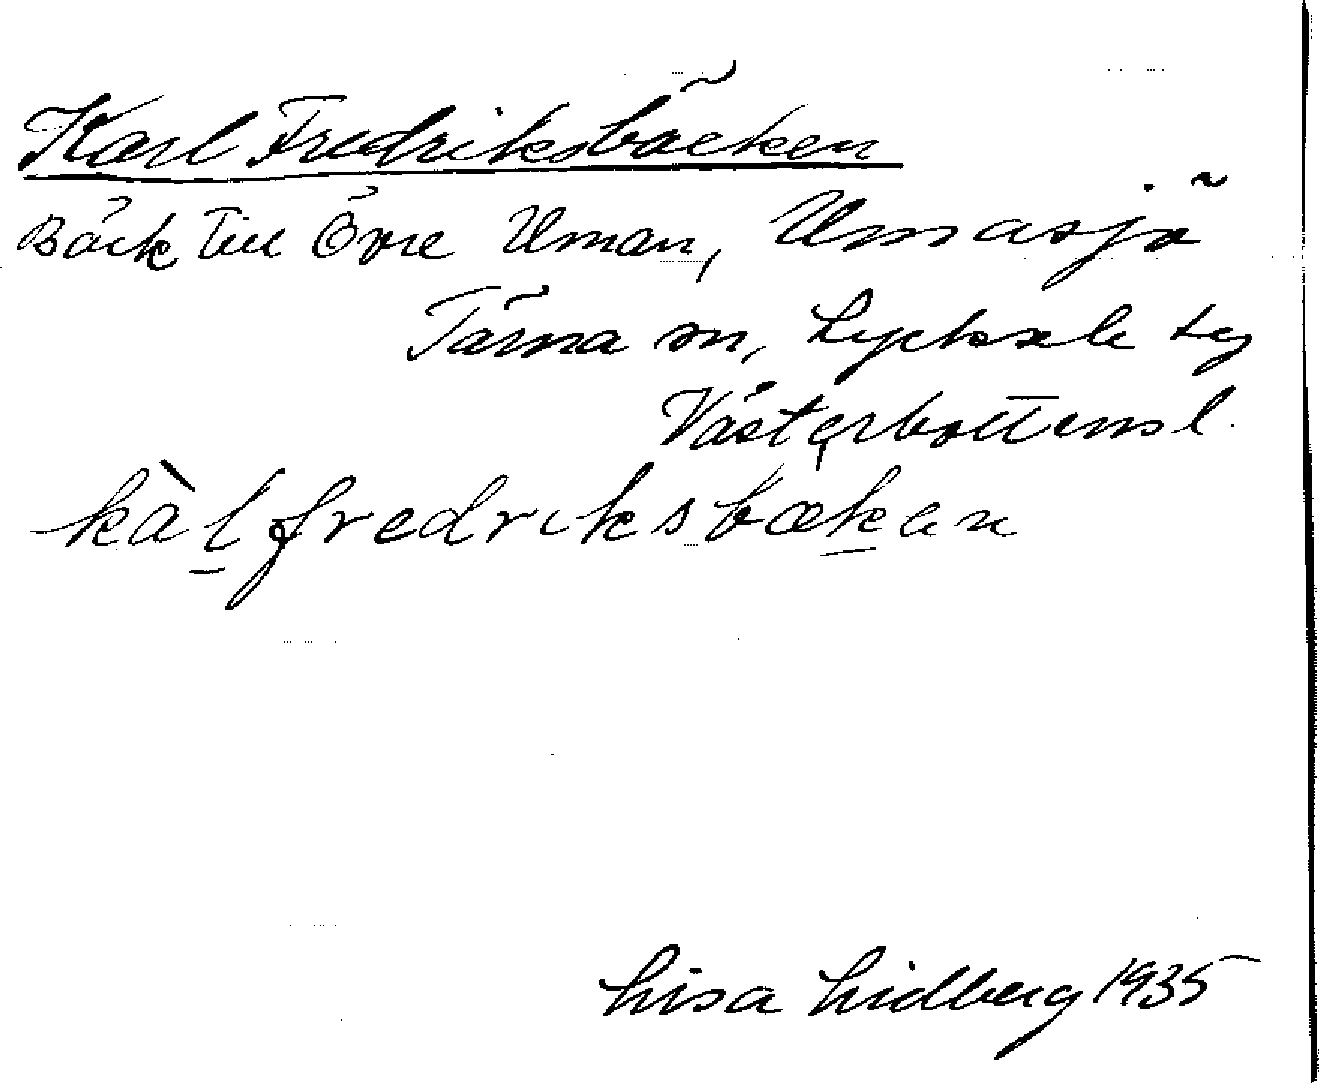 Karl Fredriksbäcken
Bäck till Övre Uman, Umasjö
Tärna sn, Lycksele tg
Västerbottens l.
kàl fredriksbækan
Lisa Lidberg 1935